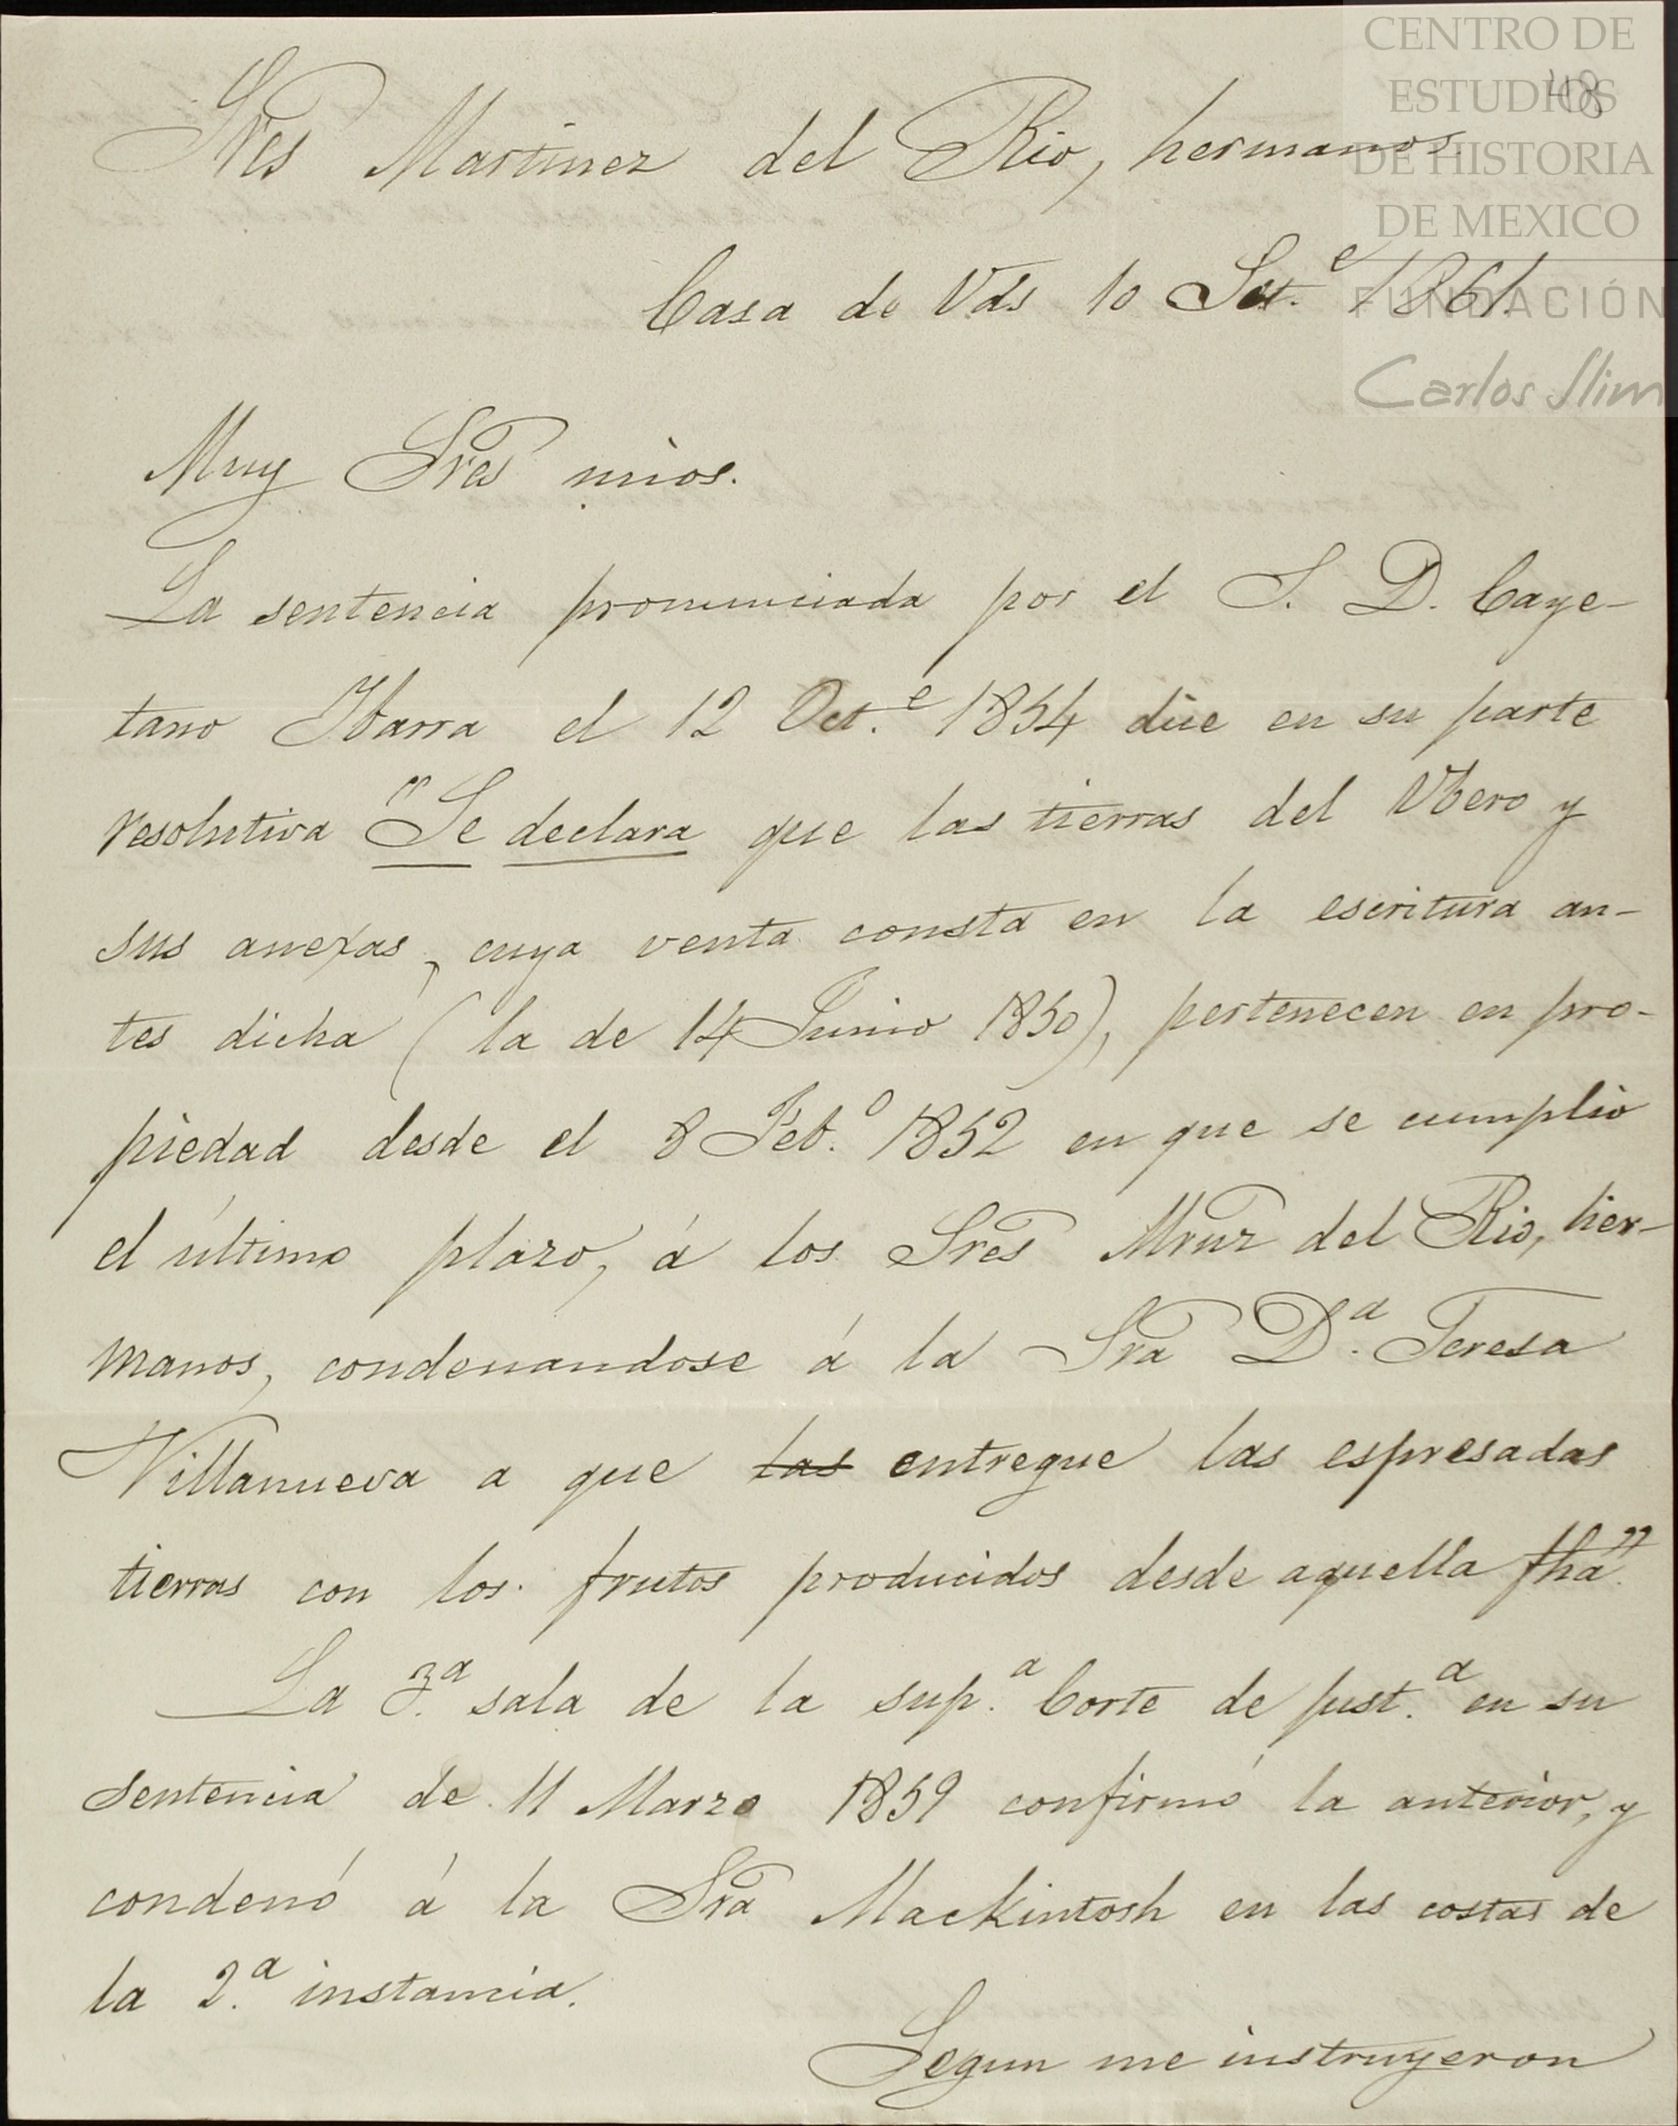 CENTRO DE
ESTUDIOS
DE HISTORIA
DE MEXICO
FUNDACIÓN
Carlos Slim
48
Sres Martinez del Rio, hermanos.
Casa de Vds 10 Set.e 1861.
Muy Sres mios.
La sentencia pronunciada por el S. D. Caye-
tano Ibarra el 12 Oct.e 1854 dice en su parte
resolutiva "Se declara que las tierras del Ubero y
sus anexas, cuya venta consta en la escritura an-
tes dicha (la de 14 Junio 1850), pertenecen en pro-
piedad desde el 8 Feb.o 1852 en que se cumplio
el último plazo, á los Sres Mrnz del Rio, her-
manos, condenandose á la Sra D.a Teresa
Villanueva a que las entregue las espresadas
tierras con los frutos producidos desde aquella fha".
La 3.a sala de la sup.a Corte de just.a en su
sentencia de 11 Marzo 1859 confirmó la anterior, y
condenó á la Sra Mackintosh en las costas de
la 2.a instancia.
Segun me instruyeron